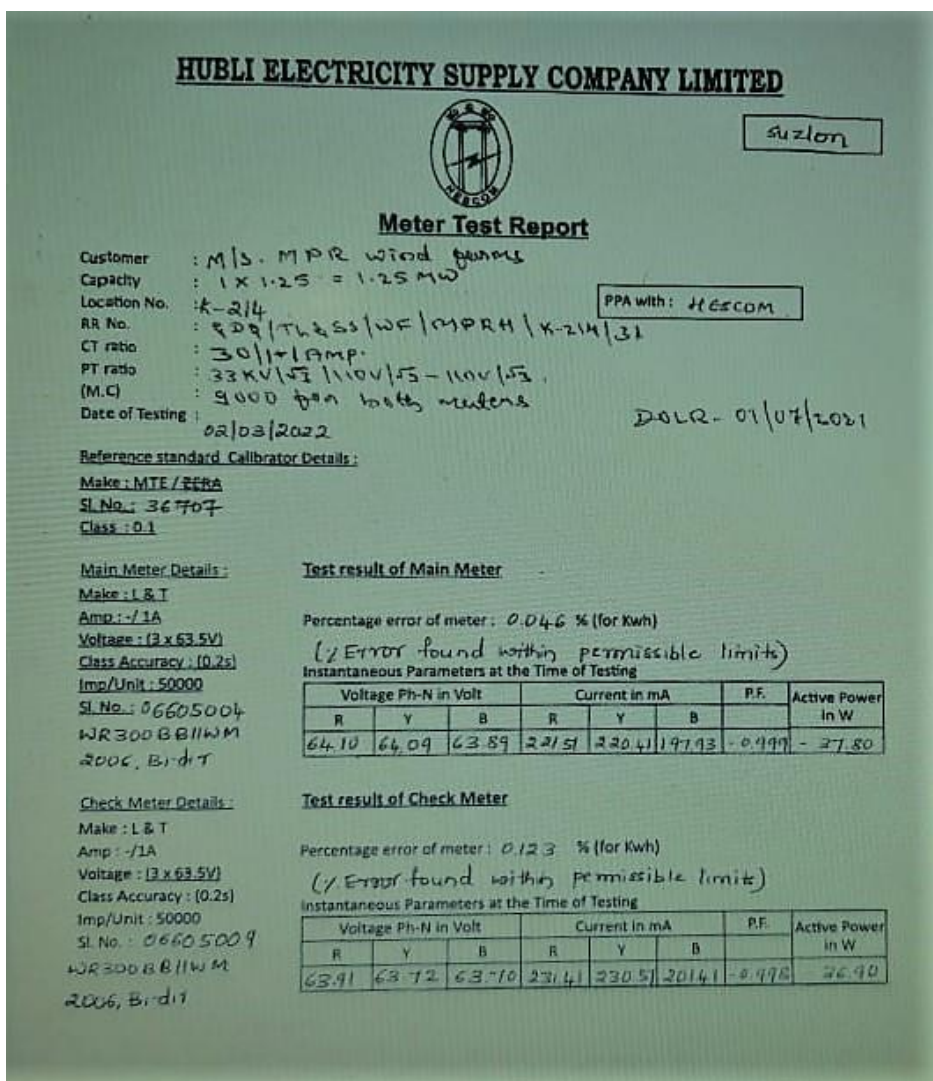 HUBLI ELECTRICITY SUPPLY COMPANY LIMITED
suzlon
HESCOM
Meter Test Report
Customer : M/s. MPR wind farms
Capacity : 1 X 1.25 = 1.25 MW
Location No. : K-214
PPA with : HESCOM
RR No. : GDG/TL&SS/WF/MPRH/K-214/31
CT ratio : 30/1+1 AMP.
PT ratio : 33KV/√3 /110V/√3 - 110V/√3.
(M.C) : 9000 for both meters
Date of Testing : 02/03/2022
DOLR - 01/07/2021
Reference standard Calibrator Details :
Make : MTE / ZERA
Sl. No. : 36707
Class : 0.1
Main Meter Details :
Make : L & T
Amp : -/ 1A
Voltage : (3 x 63.5V)
Class Accuracy : (0.2s)
Imp/Unit : 50000
Sl. No. : 06605004
WR300BB11WM
2006, Bi-dir
Test result of Main Meter
Percentage error of meter : 0.046 % (for Kwh)
(% Error found within permissible limits)
Instantaneous Parameters at the Time of Testing
Voltage Ph-N in Volt Current in mA P.F. Active Power in W
R Y B R Y B
64.10 64.09 63.89 221.51 220.41 197.93 -0.999 - 37.80
Check Meter Details :
Make : L & T
Amp : -/1A
Voltage : (3 x 63.5V)
Class Accuracy : (0.2s)
Imp/Unit : 50000
Sl. No. : 06605009
WR300BB11WM
2006, Bi-dir
Test result of Check Meter
Percentage error of meter : 0.123 % (for Kwh)
(% Error found within permissible limits)
Instantaneous Parameters at the Time of Testing
Voltage Ph-N in Volt Current in mA P.F. Active Power in W
R Y B R Y B
63.91 63.72 63.70 231.41 230.51 201.41 -0.998 36.90